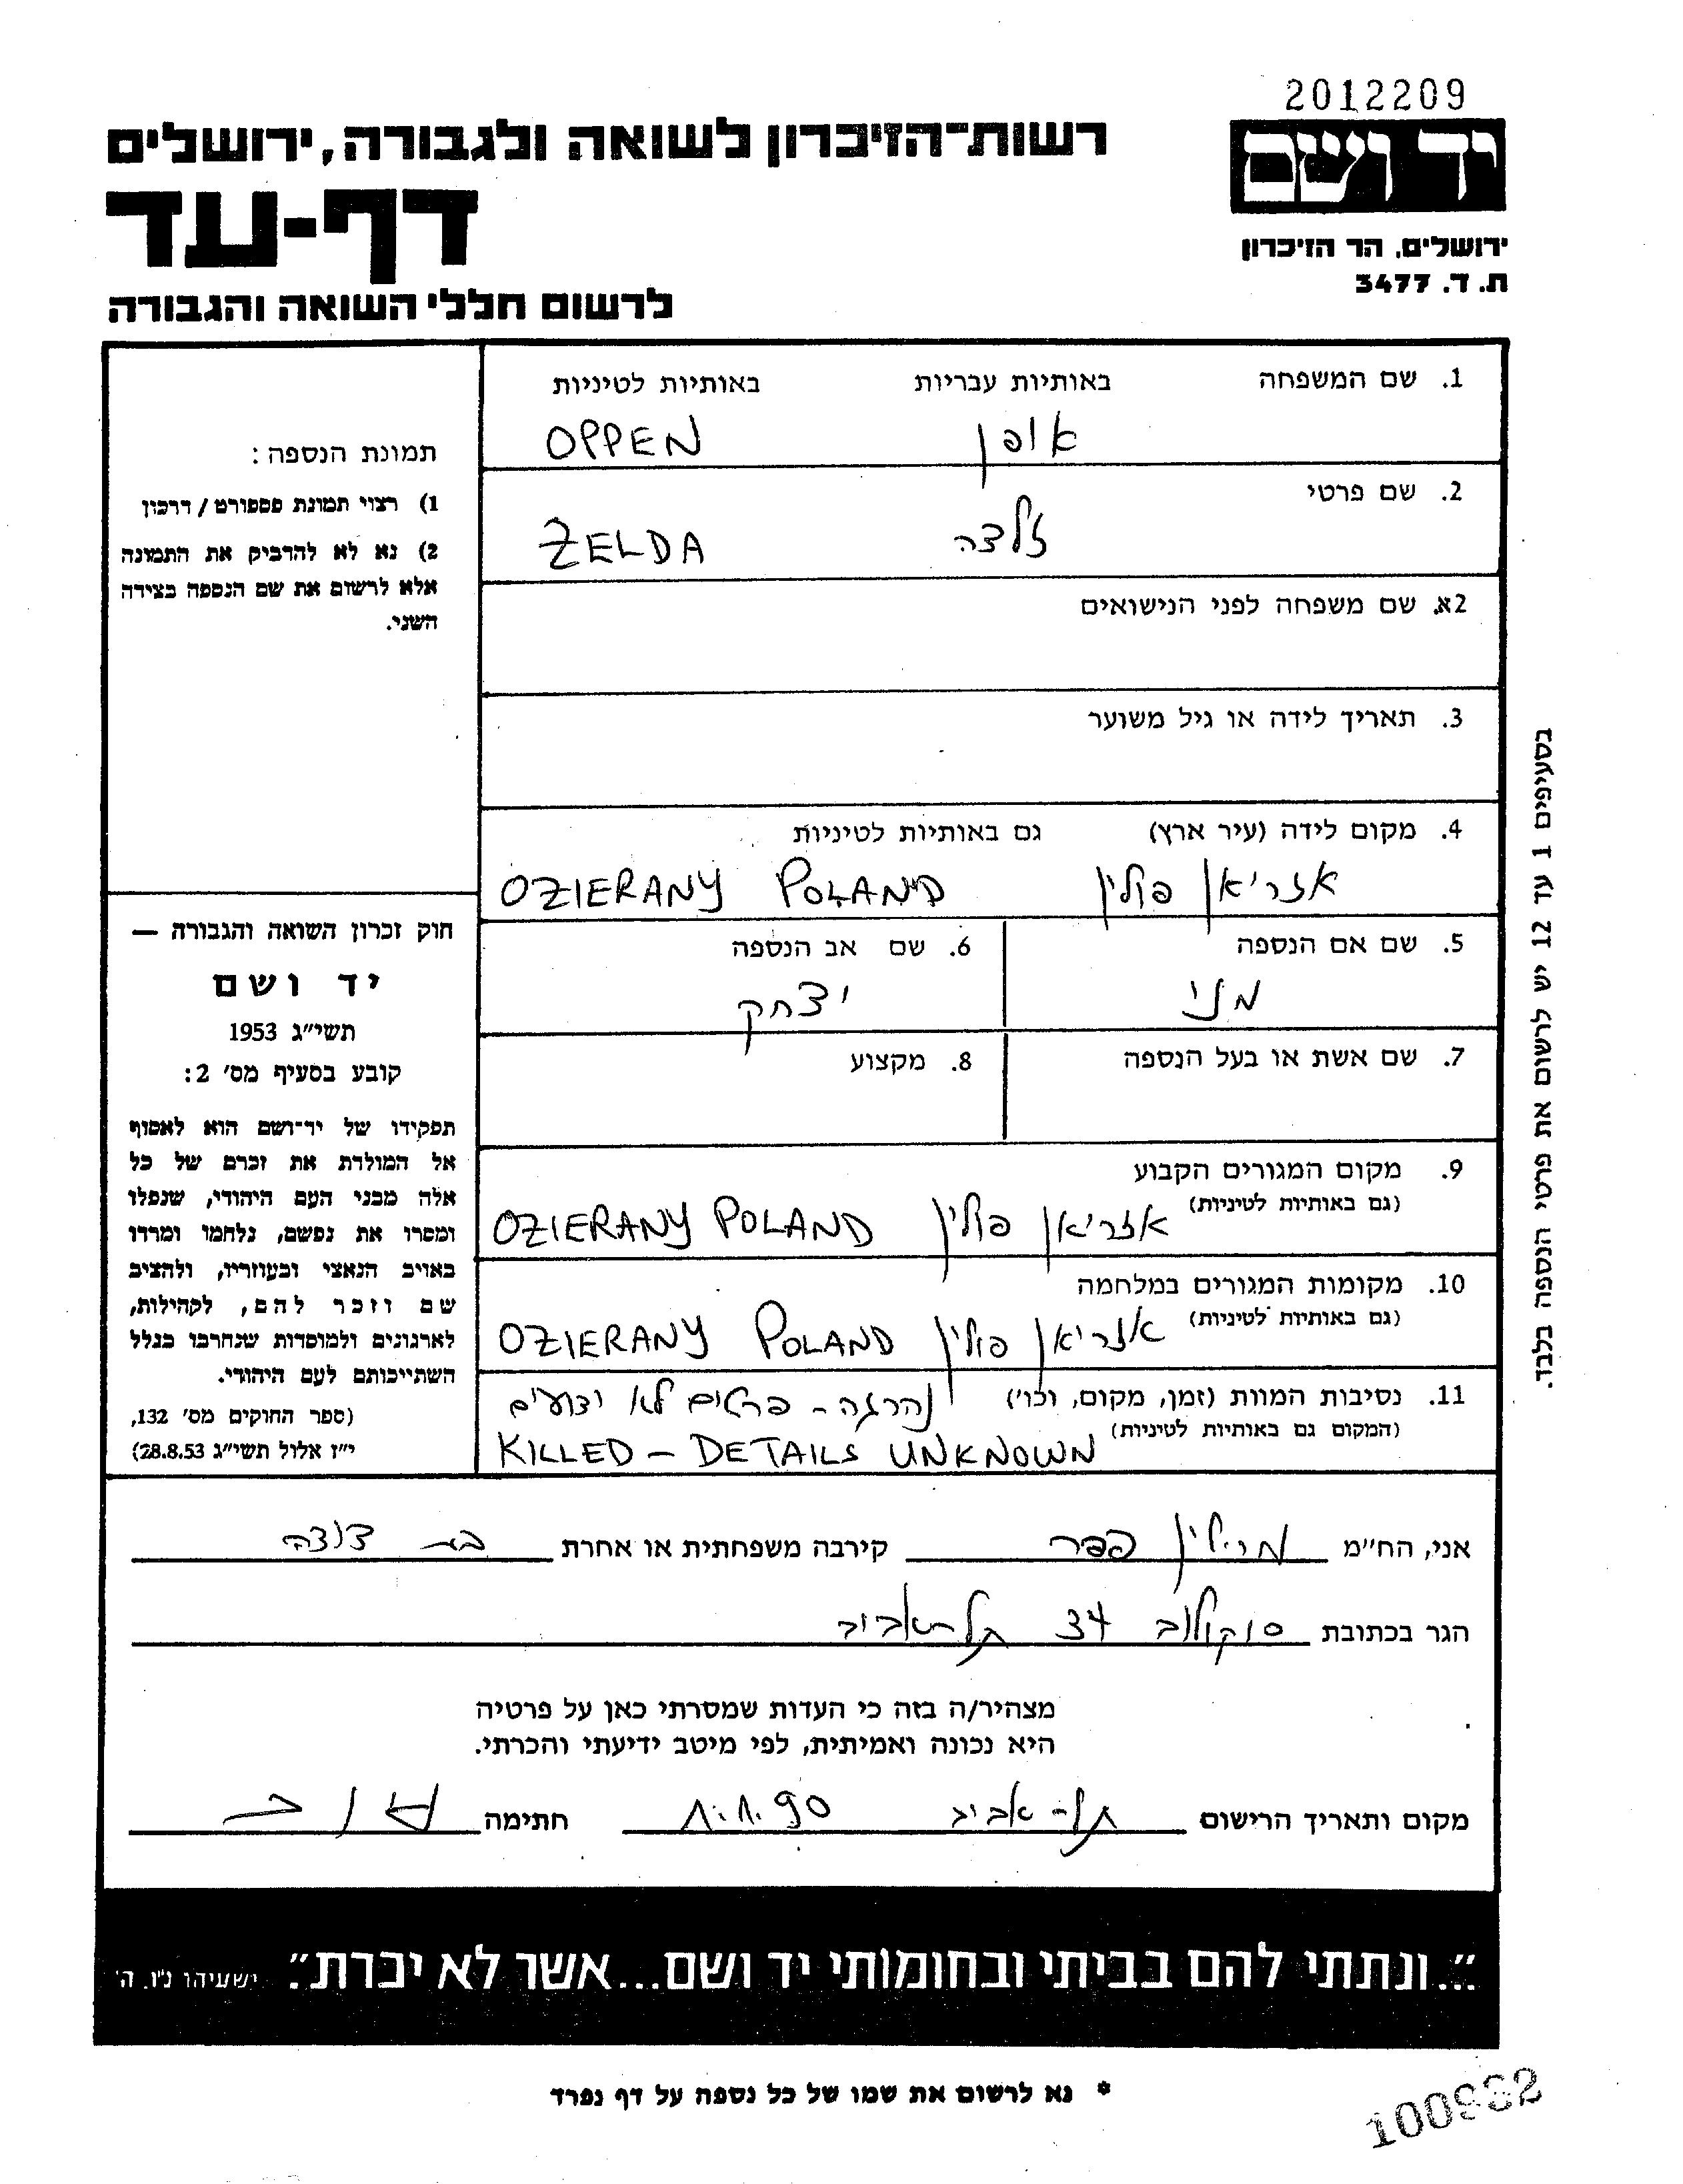 2012209
יד ושם
ירושלים, הר הזיכרון
ת. ד. 3477
רשות־הזיכרון לשואה ולגבורה, ירושלים
דף-עד
לרשום חללי השואה והגבורה
1. שם המשפחה באותיות עבריות באותיות לטיניות
אופן OPPEN
2. שם פרטי
זלדה ZELDA
2א. שם משפחה לפני הנישואים
3. תאריך לידה או גיל משוער
4. מקום לידה (עיר ארץ) גם באותיות לטיניות
אזריאן פולין OZIERANY POLAND
5. שם אם הנספה 6. שם אב הנספה
מני יצחק
7. שם אשת או בעל הנספה 8. מקצוע
9. מקום המגורים הקבוע
(גם באותיות לטיניות) אזריאן פולין OZIERANY POLAND
10. מקומות המגורים במלחמה
(גם באותיות לטיניות) אזריאן פולין OZIERANY POLAND
11. נסיבות המוות (זמן, מקום, וכו') נהרגה - פרטים לא ידועים
(המקום גם באותיות לטיניות) KILLED - DETAILS UNKNOWN
תמונת הנספה:
1) רצוי תמונת פספורט / דרכון
2) נא לא להדביק את התמונה
אלא לרשום את שם הנספה בצידה
השני.
חוק זכרון השואה והגבורה —
יד ושם
תשי״ג 1953
קובע בסעיף מס׳ 2:
תפקידו של יד־ושם הוא לאסוף
אל המולדת את זכרם של כל
אלה מבני העם היהודי, שנפלו
ומסרו את נפשם, נלחמו ומרדו
באויב הנאצי ובעוזריו, ולהציב
שם וזכר להם, לקהילות,
לארגונים ולמוסדות שנחרבו בגלל
השתייכותם לעם היהודי.
(ספר החוקים מס׳ 132,
י״ז אלול תשי״ג 28.8.53)
בסעיפים 1 עד 12 יש לרשום את פרטי הנספה בלבד.
אני, הח״מ מרילין פפר קירבה משפחתית או אחרת בת דודה
הגר בכתובת סוקולוב 34 תל-אביב
מצהיר/ה בזה כי העדות שמסרתי כאן על פרטיה
היא נכונה ואמיתית, לפי מיטב ידיעתי והכרתי.
מקום ותאריך הרישום תל-אביב חתימה
״...ונתתי להם בביתי ובחומותי יד ושם...אשר לא יכרת״. ישעיהו נ״ו, ה׳
* נא לרשום את שמו של כל נספה על דף נפרד